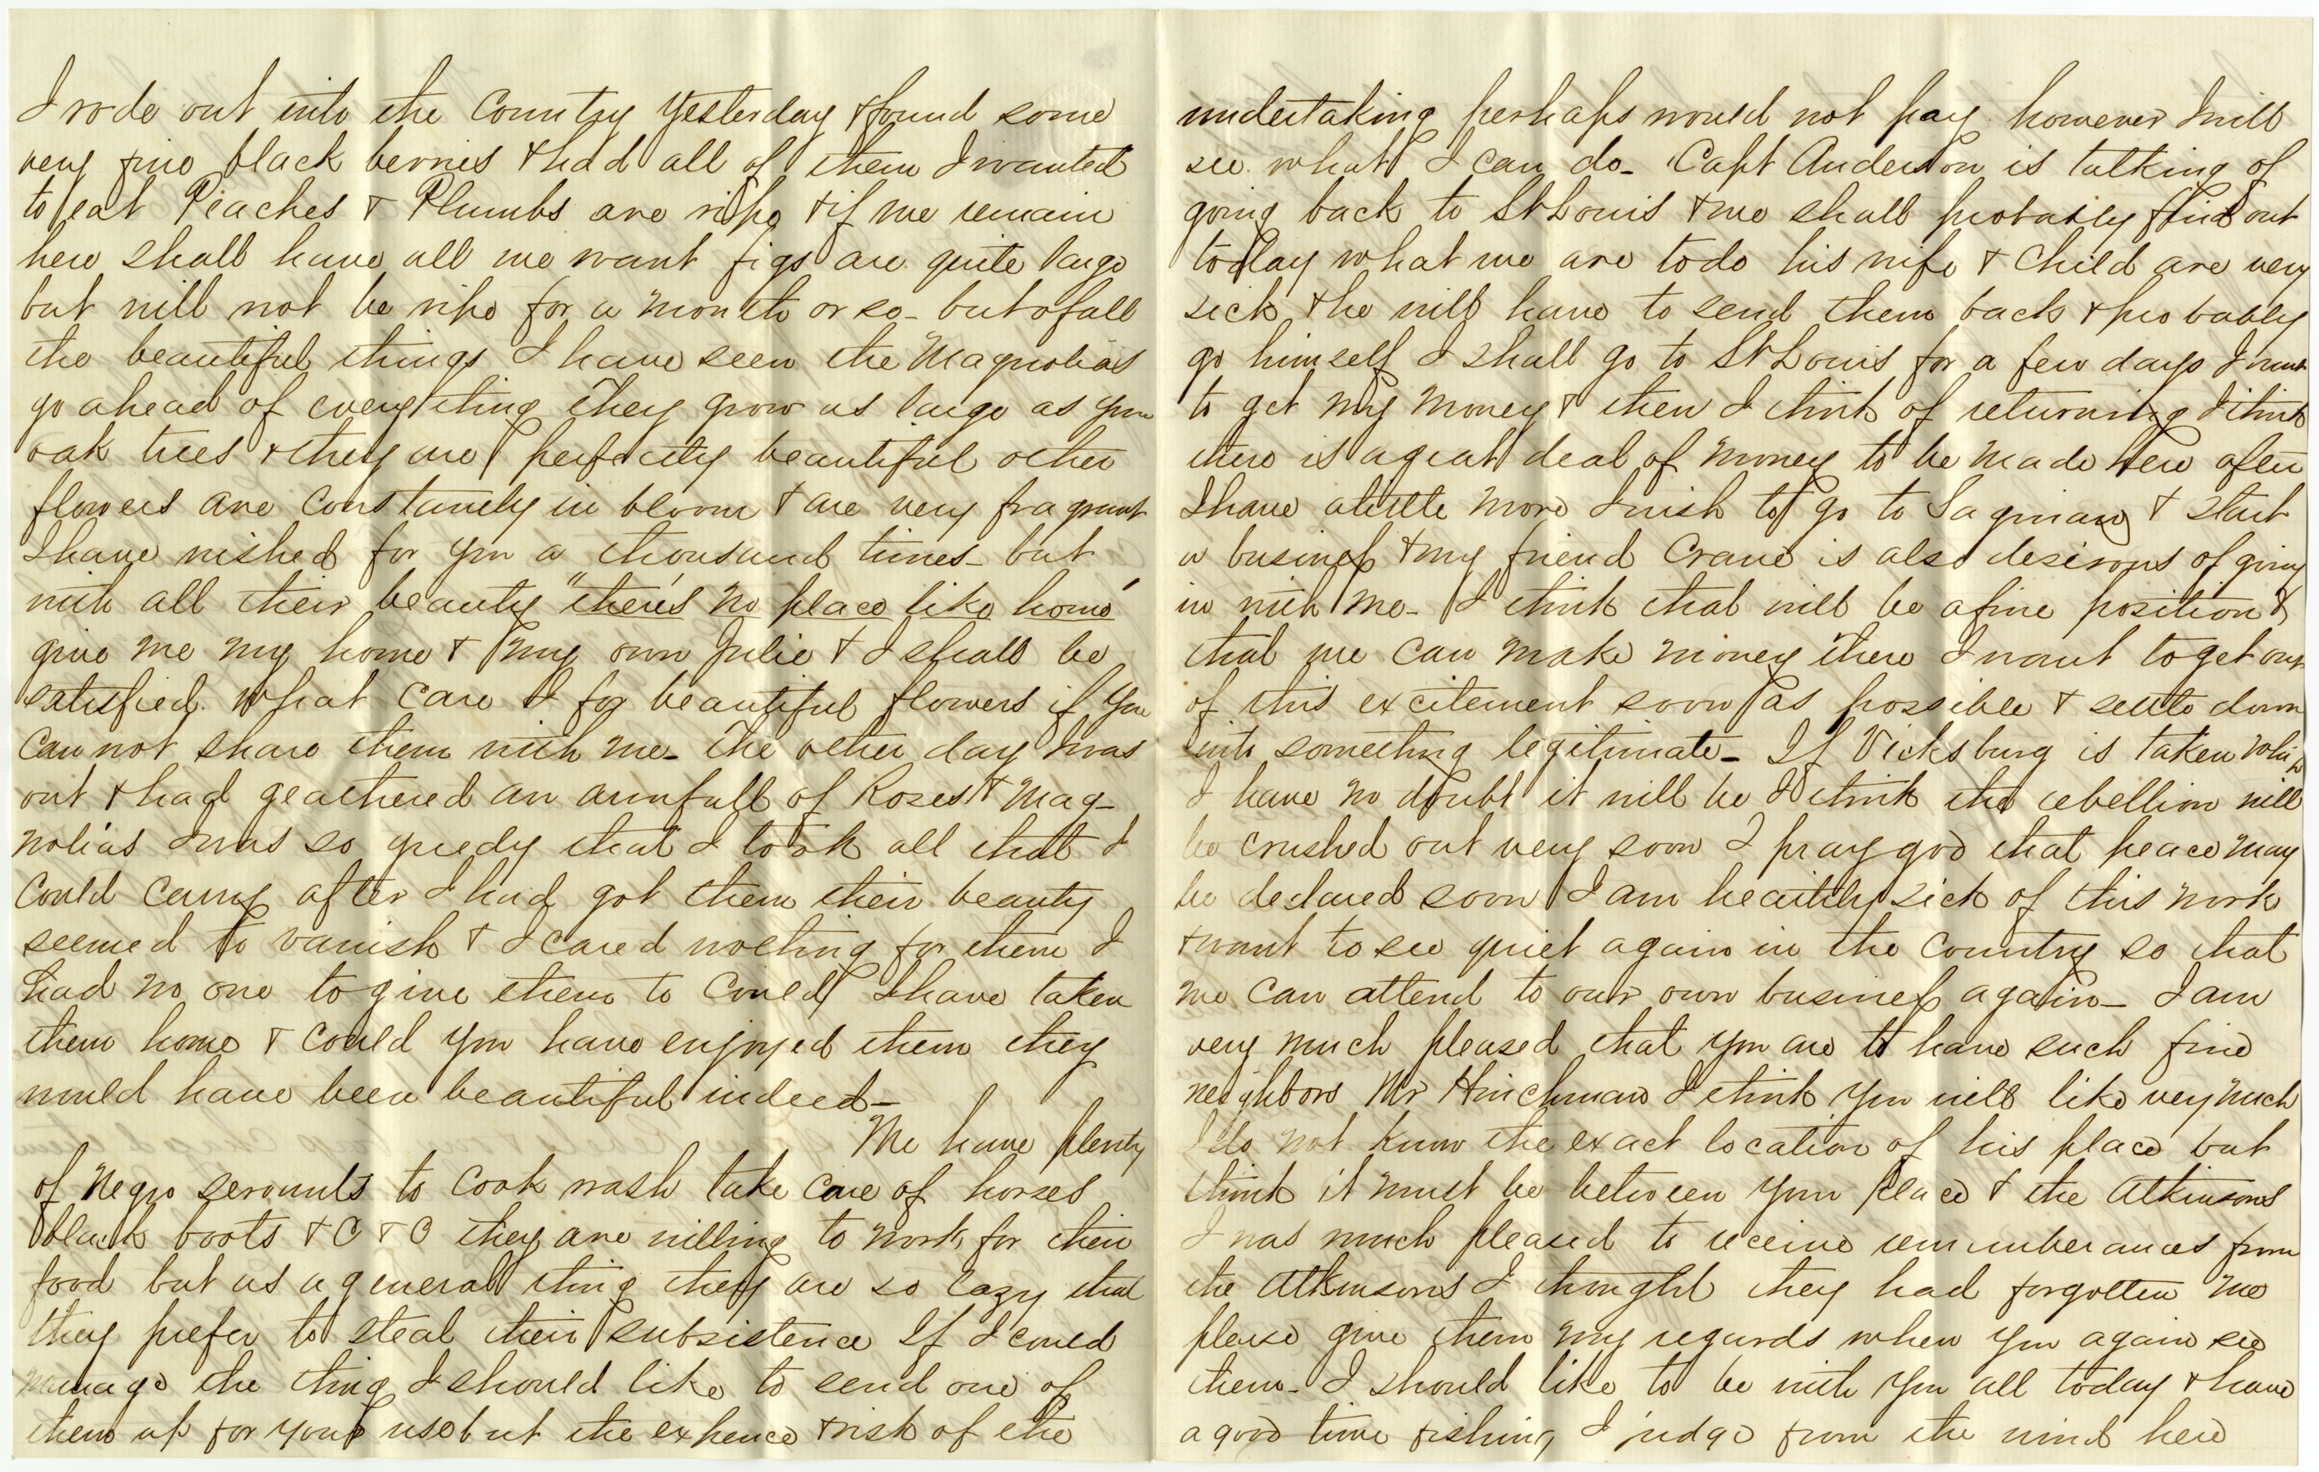 I rode out into the Country Yesterday & found some
very fine black berries & had all of them I wanted
to eat Peaches & Plumbs are ripe & if we remain
here shall have all we want figs are quite large
but will not be ripe for a month or so - but of all
the beautiful things I have seen the Magnolias
go ahead of everything They grow as large as your
oak trees & they are perfectly beautiful other
flowers are constantly in bloom & are very fragrant
I have wished for you a thousand times - but
with all their beauty "there's no place like home"
give me my home & my own Julie & I shall be
satisfied. What care I for beautiful flowers if you
can not share them with me - The other day I was
out & had geathered an armfull of Roses & Mag-
nolias I was so greedy that I took all that I
could carry after I had got them their beauty
seemed to vanish & I cared nothing for them I
had no one to give them to Could I have taken
them home & could you have enjoyed them they
would have been beautiful indeed -
We have plenty
of Negro servants to cook wash take care of horses
black boots & C & C they are willing to work for their
food but as a general thing they are so lazy that
they prefer to steal their subsistence If I could
manage the thing I should like to send one of
them up for your use but the expence & risk of the
undertaking perhaps would not pay however I will
see what I can do - Capt Anderson is talking of
going back to St Louis & we shall probably find out
today what we are to do his wife & child are very
sick & he will have to send them back & probably
go himself I shall go to St Louis for a few days I want
to get my money & then I think of returning I think
there is a great deal of money to be made here after
I have a little more I wish to go to Saginaw & start
a business & my friend Crane is also desirous of going
in with me - I think that will be a fine position &
that we can make money there I want to get out
of this excitement soon as possible & settle down
into something legitimate - If Vicksburg is taken which
I have no doubt it will be I think the rebellion will
be crushed out very soon I pray god that peace may
be declared soon I am heartily sick of this work
& want to see quiet again in the country so that
we can attend to our own business again - I am
very much pleased that you are to have such fine
neighbors Mr Hinchman I think you will like very much
I do not know the exact location of his place but
think it must be between your place & the Atkinsons
I was much pleased to receive rememberances from
the Atkinsons I thought they had forgotten me
please give them my regards when you again see
them - I should like to be with you all today & have
a good time fishing I judge from the wind here